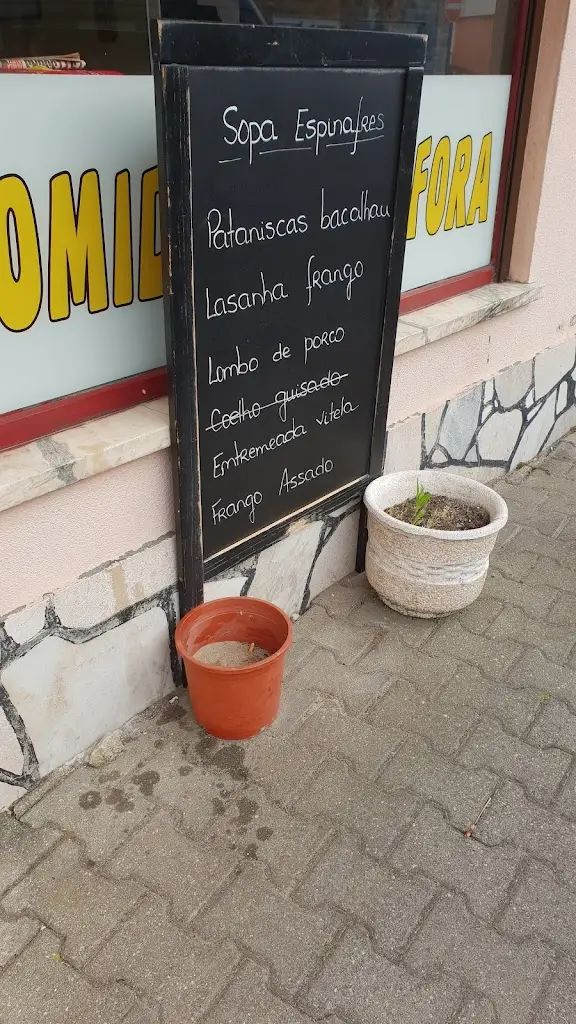 Sopa Espinafres
Pataniscas bacalhau
Lasanha frango
Lombo de porco
Coelho guisado
Entremeada vitela
Frango Assado
OMID
FORA